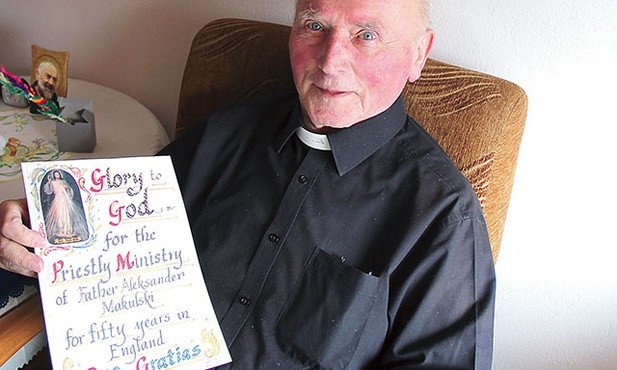 Glory to
God
for the
Priestly Ministry
of Father Aleksander
Makulski
for fifty years in
England
Gratias